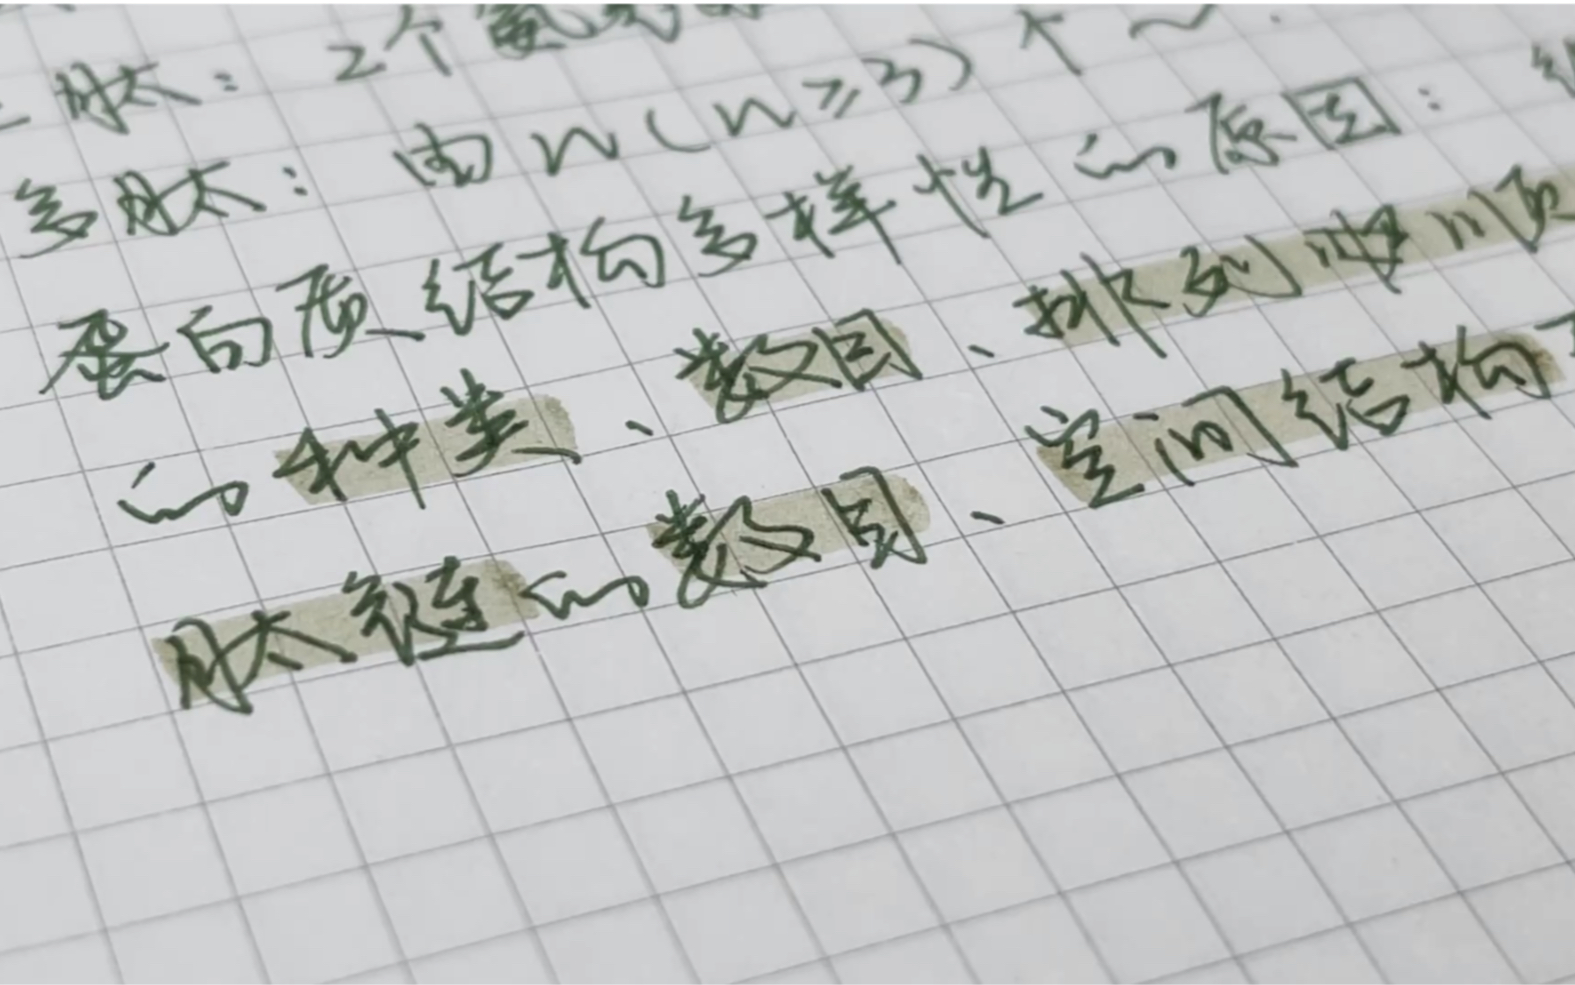 二肽：2个氨
多肽：由n（n≥3）个～.
蛋白质结构多样性的原因：
的种类、数目、排列
肽链的数目、空间结构